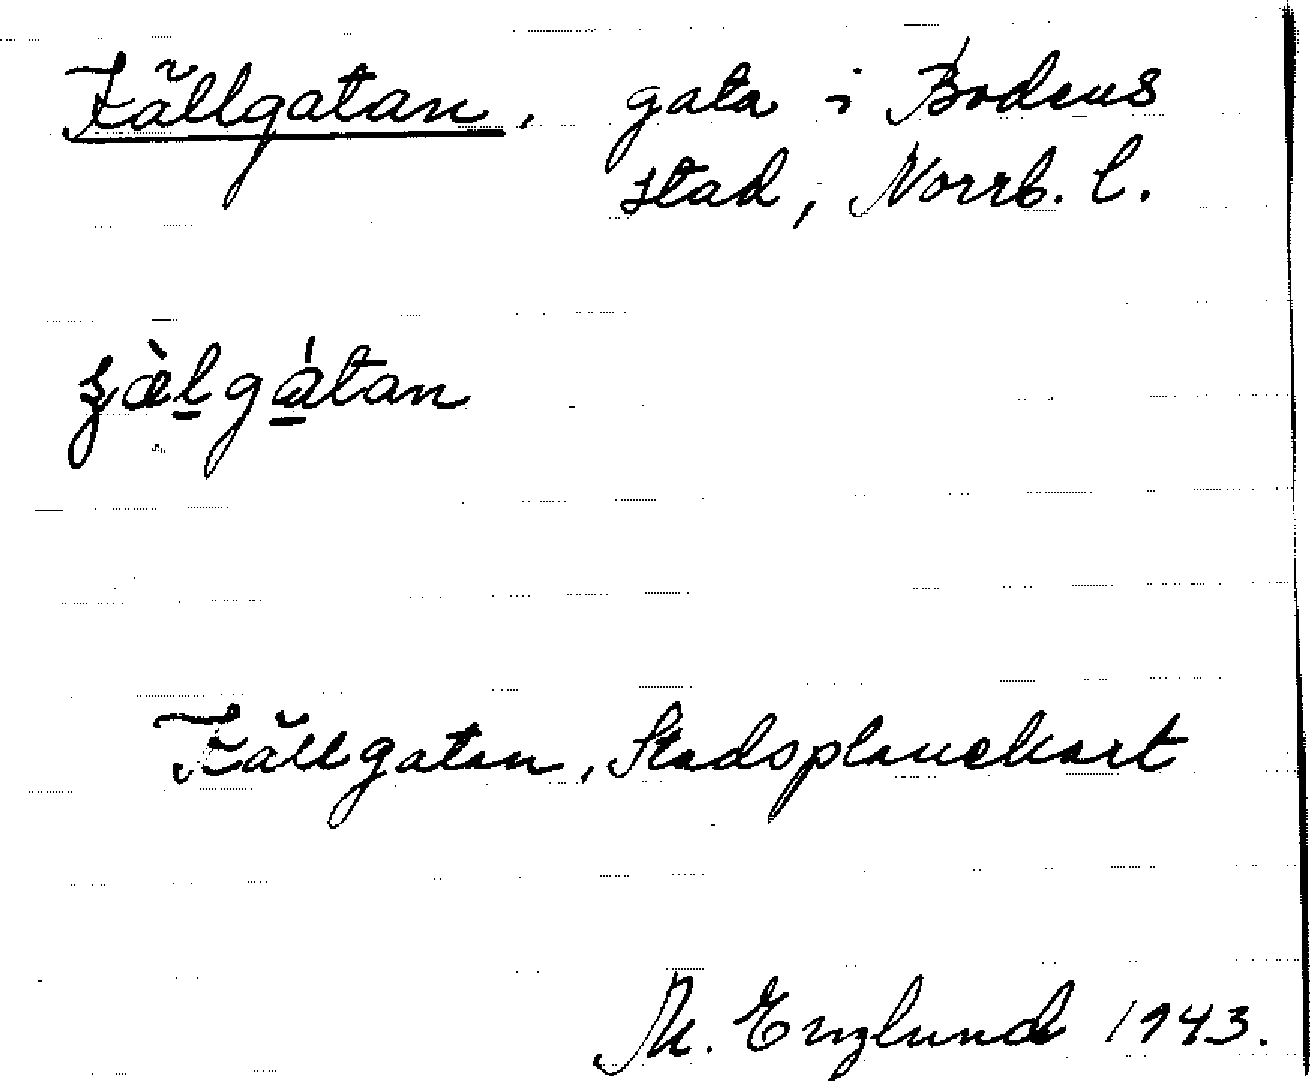 Fällgatan, gata i Bodens
stad, Norrb. l.
fæ̀l̲gá̲tan
Fällgatan, Stadsplanekart
M. Englund 1943.